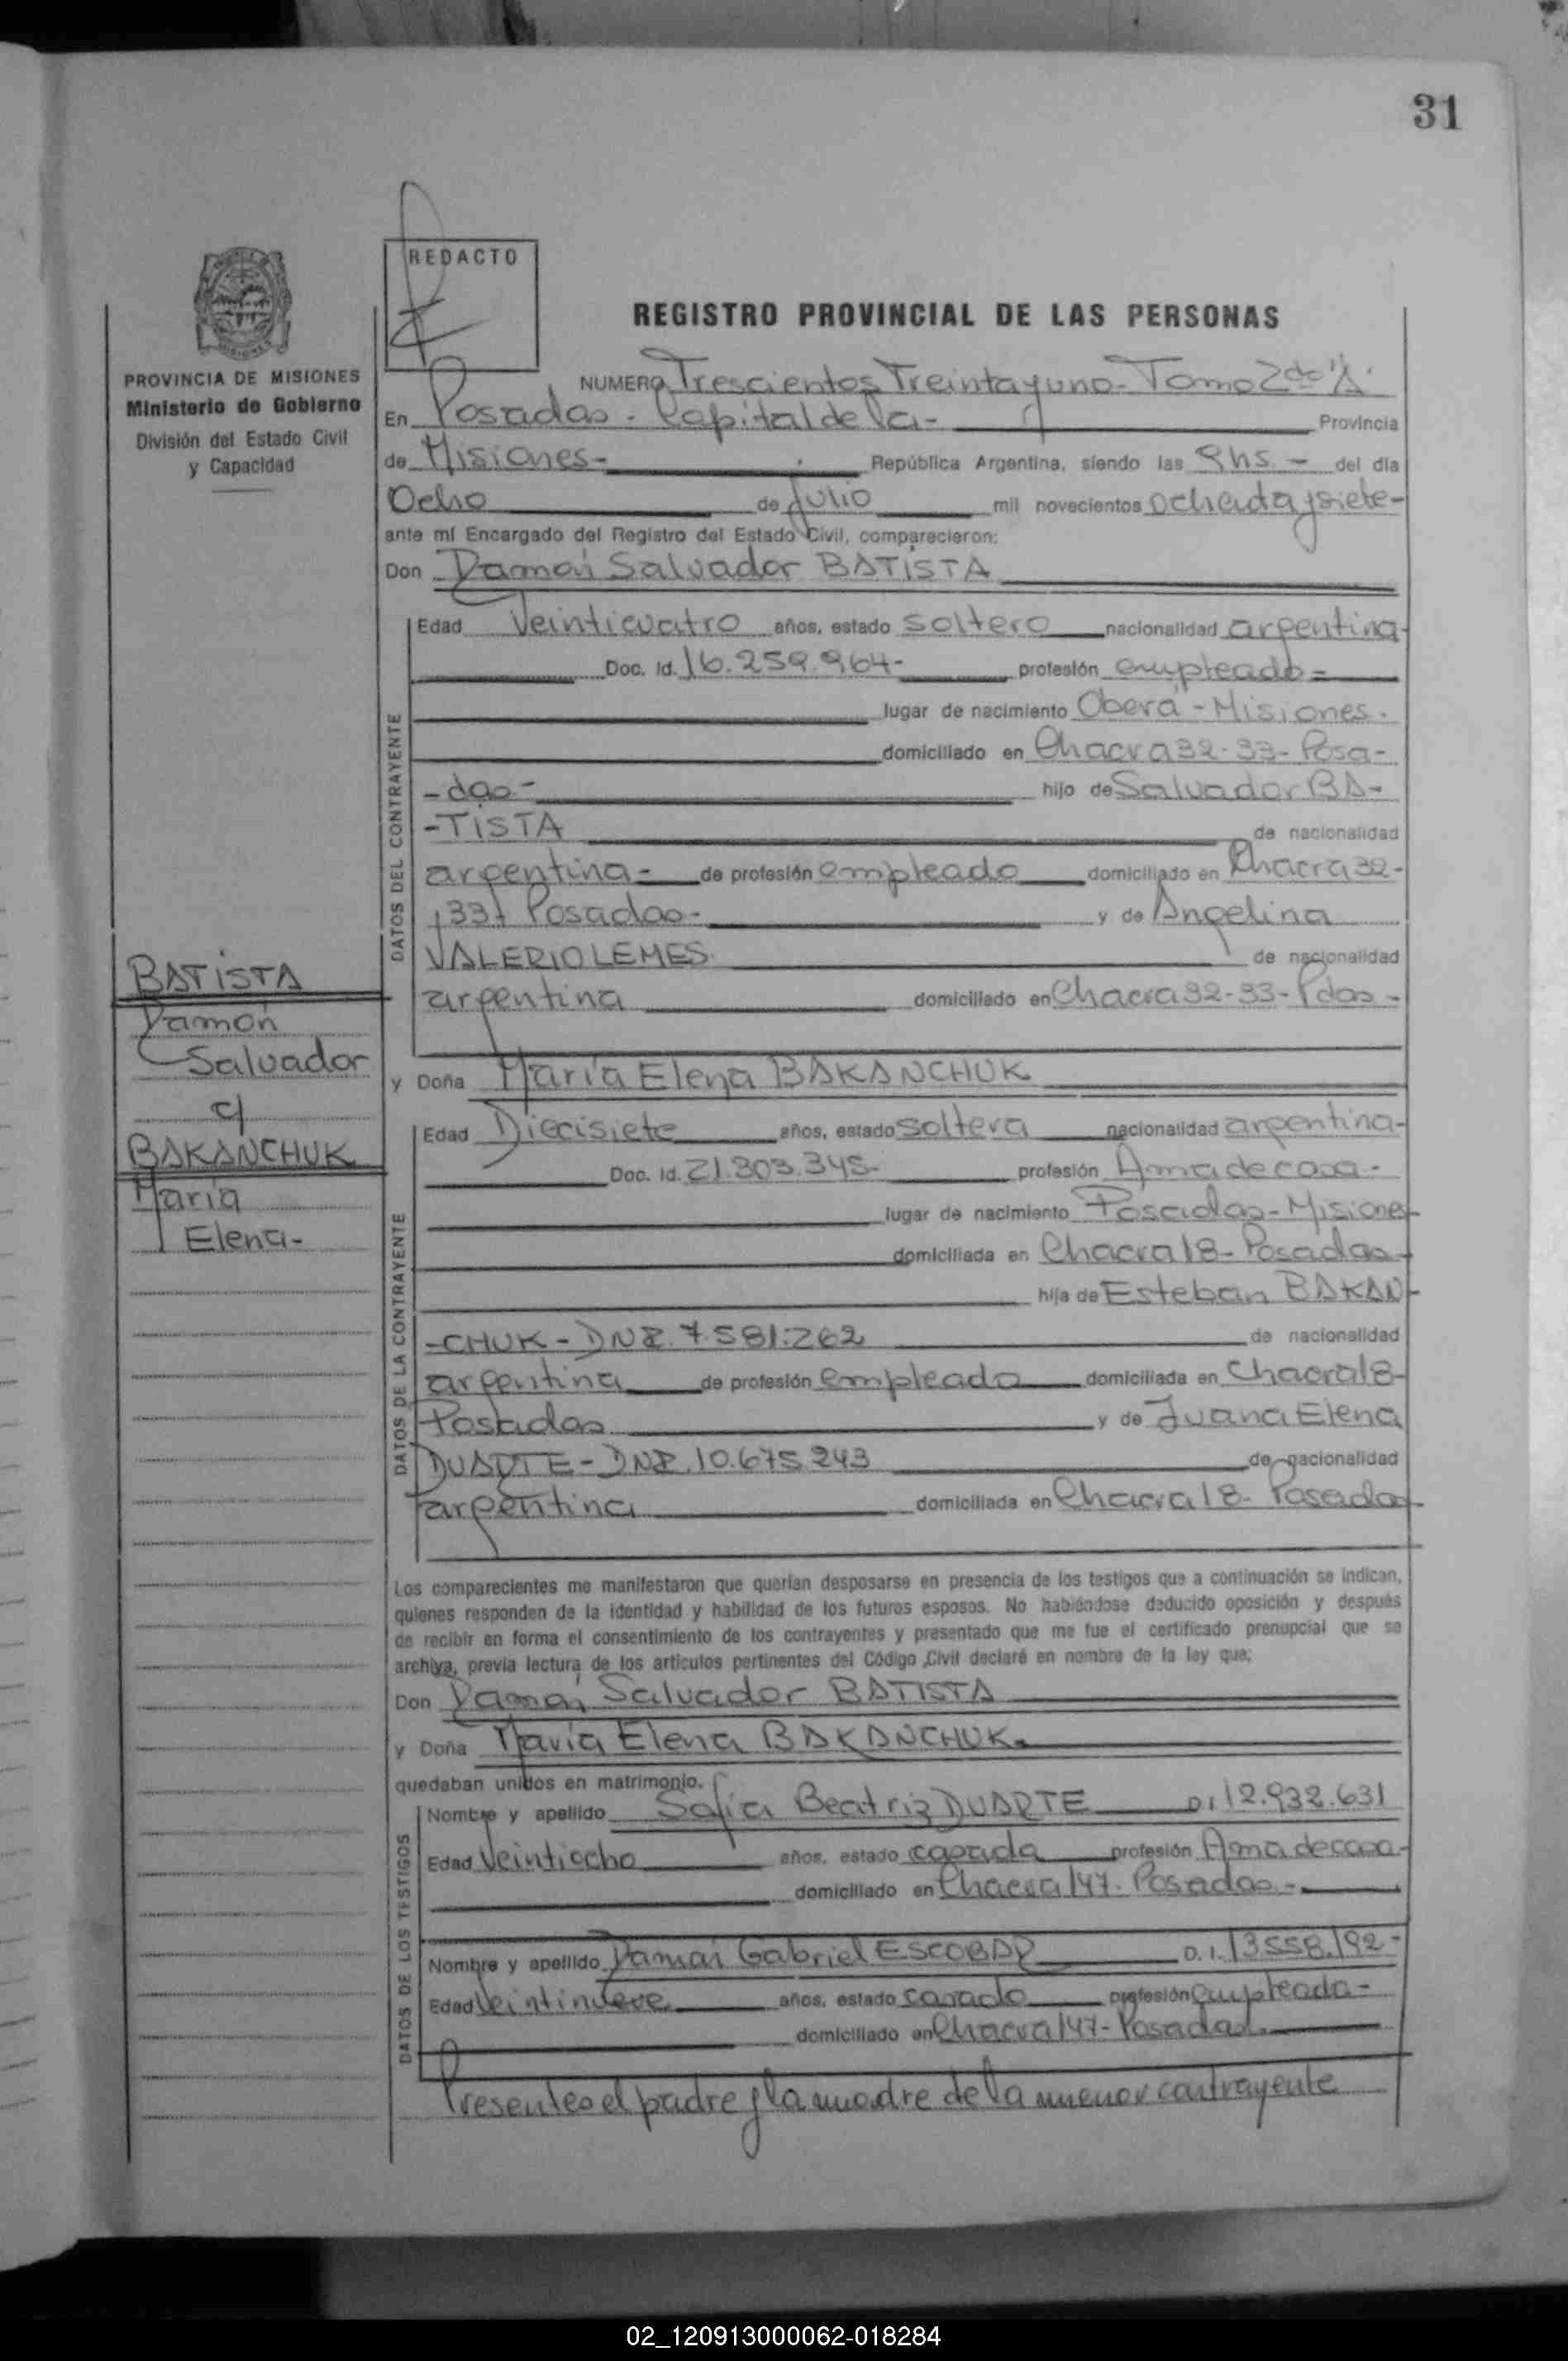 31
REDACTO
REGISTRO PROVINCIAL DE LAS PERSONAS
PROVINCIA DE MISIONES
Ministerio de Gobierno
División del Estado Civil
y Capacidad
NUMERO Trescientos Treinta y uno - Tomo 2do "A"
En Posadas - Capital de la - Provincia
de Misiones - República Argentina, siendo las 9hs - del día
Ocho de Julio mil novecientos ochenta y siete -
ante mí Encargado del Registro del Estado Civil, comparecieron:
Don Ramón Salvador BATISTA
DATOS DEL CONTRAYENTE
Edad Veinticuatro años, estado soltero nacionalidad argentina -
Doc. Id. 16.259.964 - profesión empleado -
lugar de nacimiento Oberá - Misiones -
domiciliado en Chacra 32-33 - Posa-
-das - hijo de Salvador BA-
-TISTA de nacionalidad
argentina - de profesión empleado domiciliado en Chacra 32-
33 Posadas - y de Angelina
VALERIO LEMES de nacionalidad
argentina domiciliado en Chacra 32-33 - Pdas -
BATISTA
Ramón
Salvador
c/
BAKANCHUK
María
Elena -
y Doña María Elena BAKANCHUK
DATOS DE LA CONTRAYENTE
Edad Diecisiete años, estado soltera nacionalidad argentina -
Doc. Id. 21.303.345 - profesión Ama de casa -
lugar de nacimiento Posadas - Misiones
domiciliada en Chacra 18 - Posadas
hija de Esteban BAKAN-
-CHUK - DNI. 7.581.262 de nacionalidad
argentina de profesión empleado domiciliada en Chacra 18 -
Posadas y de Juana Elena
DUARTE - DNI. 10.675.243 de nacionalidad
argentina domiciliada en Chacra 18 - Posadas
Los comparecientes me manifestaron que querían desposarse en presencia de los testigos que a continuación se indican,
quienes responden de la identidad y habilidad de los futuros esposos. No habiéndose deducido oposición y después
de recibir en forma el consentimiento de los contrayentes y presentado que me fue el certificado prenupcial que se
archiva, previa lectura de los artículos pertinentes del Código Civil declaré en nombre de la ley que;
Don Ramón Salvador BATISTA
y Doña María Elena BAKANCHUK -
quedaban unidos en matrimonio.
DATOS DE LOS TESTIGOS
Nombre y apellido Sofia Beatriz DUARTE D.I. 12.932.631
Edad Veintiocho años, estado casada profesión Ama de casa -
domiciliado en Chacra 147 - Posadas -
Nombre y apellido Ramón Gabriel ESCOBAR D.I. 13.558.192 -
Edad Veintinueve años, estado casado profesión empleado -
domiciliado en Chacra 147 - Posadas.
Presentes el padre y la madre de la menor contrayente
02_120913000062-018284